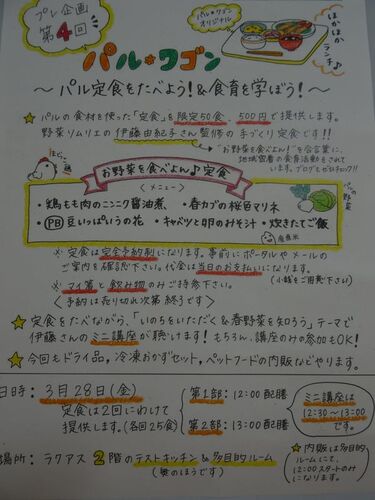 プレ企画
第4回
パル★ワゴン
オリジナル
ほかほか
ランチ♪
パル★ワゴン
～パル定食をたべよう!&食育を学ぼう!～
パルの食材を使った「定食」を限定50食、500円で提供します。
野菜ソムリエの伊藤由紀子さん監修の手づくり定食です!!
"お野菜を食べよん!"を合言葉に、
地域密着の食育活動をされて
います。ブログもぜひチェック!!
お野菜を食べよん♪定食
<メニュー>
・鶏もも肉のニンニク醤油煮 ・春カブの桜色マリネ
・PB豆いっぱいうの花 ・キャベツと卵のみそ汁 ・炊きたてご飯
産直米
パルの野菜
※定食は完全予約制になります。事前にポータルやメールの
ご案内を確認下さい。代金は当日のお支払いになります。
(小銭をご用意下さい)
※マイ箸と飲み物のみご持参下さい。
<予約は売り切れ次第終了です>
★定食をたべながら、「いのちをいただく&春野菜を知ろう」テーマで
伊藤さんのミニ講座が聴けます!もちろん、講座のみの参加もOK!
★今回もドライ品、冷凍おかずセット、ペットフードの内販などやります。
日時:3月28日(金)
定食は2回にわけて
提供します。(各回25食)
第1部:12:00配膳
第2部:13:00配膳
ミニ講座は
12:30~13:00
です。
場所:ラクアス2階のテストキッチン&多目的ルーム
(奥のほうです)
★内販は多目的
ルームにて、
12:00スタートのみ
になります。